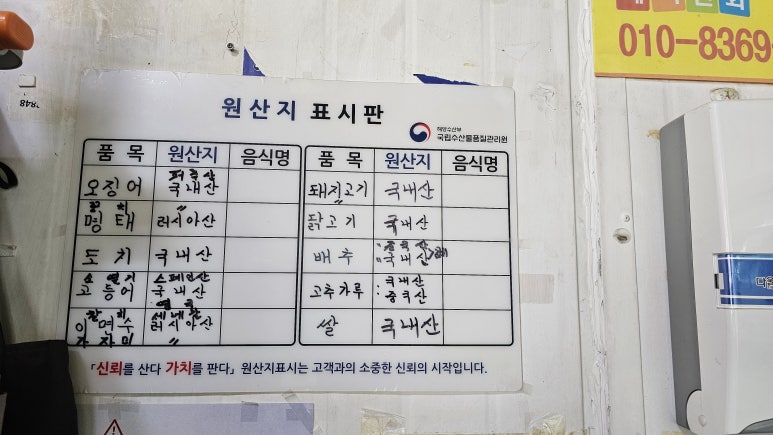 010-8369
원산지 표시판
해양수산부
국립수산물품질관리원
품 목 원산지 음식명
페루산
오징어 국내산
명태 러시아산
도치 국내산
스페인산
고등어 국내산
세네갈산
임연수 러시아산
가자미 〃
품 목 원산지 음식명
돼지고기 국내산
닭고기 국내산
중국산
배추 국내산
국내산
고추가루 : 중국산
쌀 국내산
「신뢰를 산다 가치를 판다」 원산지표시는 고객과의 소중한 신뢰의 시작입니다.